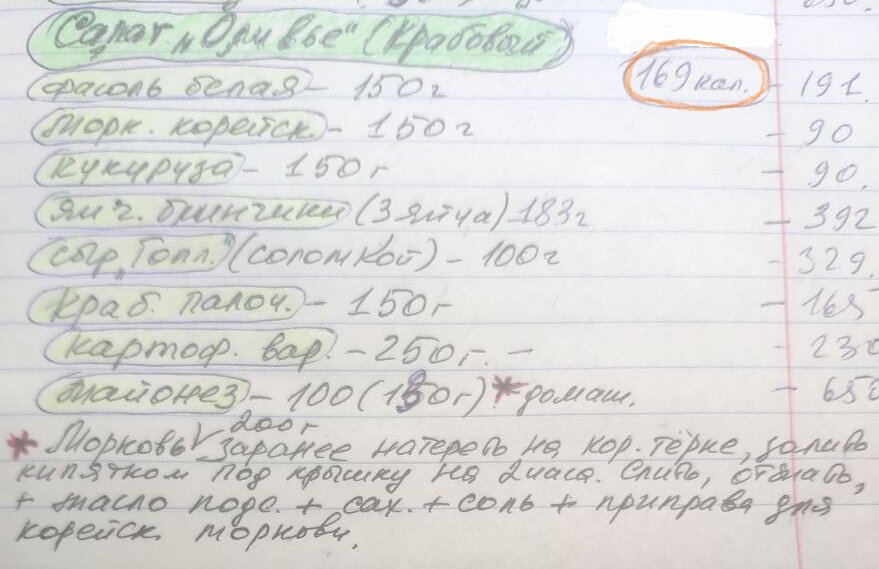 Салат „Оливье" (крабовый)
169 кал.
фасоль белая - 150 г - 191.
морк. корейск. - 150 г - 90
кукуруза - 150 г - 90.
яич. блинчики (3 яйца) 183 г - 392
сыр „Голл." (соломкой) - 100 г - 329.
краб. палоч. - 150 г - 165
картоф. вар. - 250 г. - - 230
майонез - 100 (130 г) * домаш. - 650
200 г
* Морковь V заранее натереть на кор. тёрке, залить
кипятком под крышку на 2 часа. Слить, отжать,
+ масло подс. + сах. + соль + приправа для
корейск. моркови.